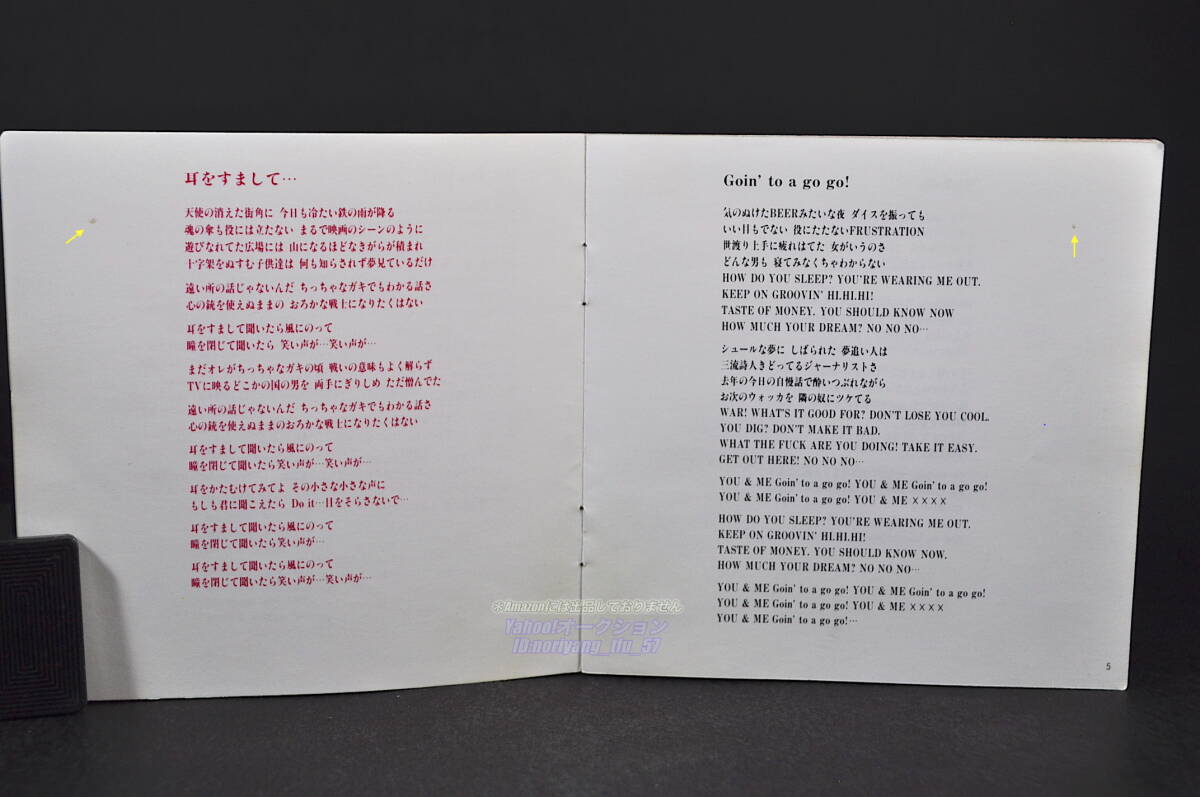 耳をすまして…
天使の消えた街角に 今日も冷たい鉄の雨が降る
魂の傘も役には立たない まるで映画のシーンのように
遊びなれてた広場には 山になるほどなきがらが積まれ
十字架をぬすむ子供達は 何も知らされず夢見ているだけ
遠い所の話じゃないんだ ちっちゃなガキでもわかる話さ
心の銃を使えぬままの おろかな戦士になりたくはない
耳をすまして聞いたら風にのって
瞳を閉じて聞いたら 笑い声が…笑い声が…
まだオレがちっちゃなガキの頃 戦いの意味もよく解らず
TVに映るどこかの国の男を 両手にぎりしめ ただ憎んでた
遠い所の話じゃないんだ ちっちゃなガキでもわかる話さ
心の銃を使えぬままのおろかな戦士になりたくはない
耳をすまして聞いたら風にのって
瞳を閉じて聞いたら笑い声が…笑い声が…
耳をかたむけてみてよ その小さな小さな声に
もしも君に聞こえたら Do it…目をそらさないで…
耳をすまして聞いたら風にのって
瞳を閉じて聞いたら笑い声が…
耳をすまして聞いたら風にのって
瞳を閉じて聞いたら笑い声が…笑い声が…
Goin' to a go go!
気のぬけたBEERみたいな夜 ダイスを振っても
いい目もでない 役にたたないFRUSTRATION
世渡り上手に疲れはてた 女がいうのさ
どんな男も 寝てみなくちゃわからない
HOW DO YOU SLEEP? YOU'RE WEARING ME OUT.
KEEP ON GROOVIN' HI.HI.HI!
TASTE OF MONEY. YOU SHOULD KNOW NOW
HOW MUCH YOUR DREAM? NO NO NO…
シュールな夢に しばられた 夢追い人は
三流詩人きどってるジャーナリストさ
去年の今日の自慢話で酔いつぶれながら
お次のウォッカを 隣の奴にツケてる
WAR! WHAT'S IT GOOD FOR? DON'T LOSE YOU COOL.
YOU DIG? DON'T MAKE IT BAD.
WHAT THE FUCK ARE YOU DOING! TAKE IT EASY.
GET OUT HERE! NO NO NO…
YOU & ME Goin' to a go go! YOU & ME Goin' to a go go!
YOU & ME Goin' to a go go! YOU & ME ××××
HOW DO YOU SLEEP? YOU'RE WEARING ME OUT.
KEEP ON GROOVIN' HI.HI.HI!
TASTE OF MONEY. YOU SHOULD KNOW NOW.
HOW MUCH YOUR DREAM? NO NO NO…
YOU & ME Goin' to a go go! YOU & ME Goin' to a go go!
YOU & ME Goin' to a go go! YOU & ME ××××
YOU & ME Goin' to a go go!…
5
※Amazonには出品しておりません
Yahoo!オークション
ID:noriyang_ifu_57